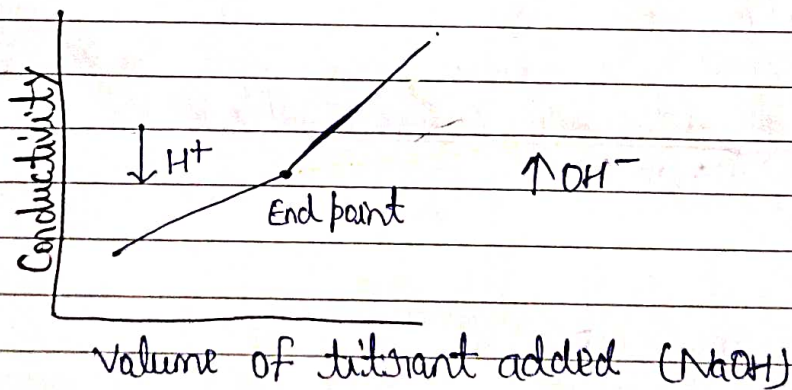 Conductivity
↓ H+
↑ OH−
End point
Volume of titrant added (NaOH)